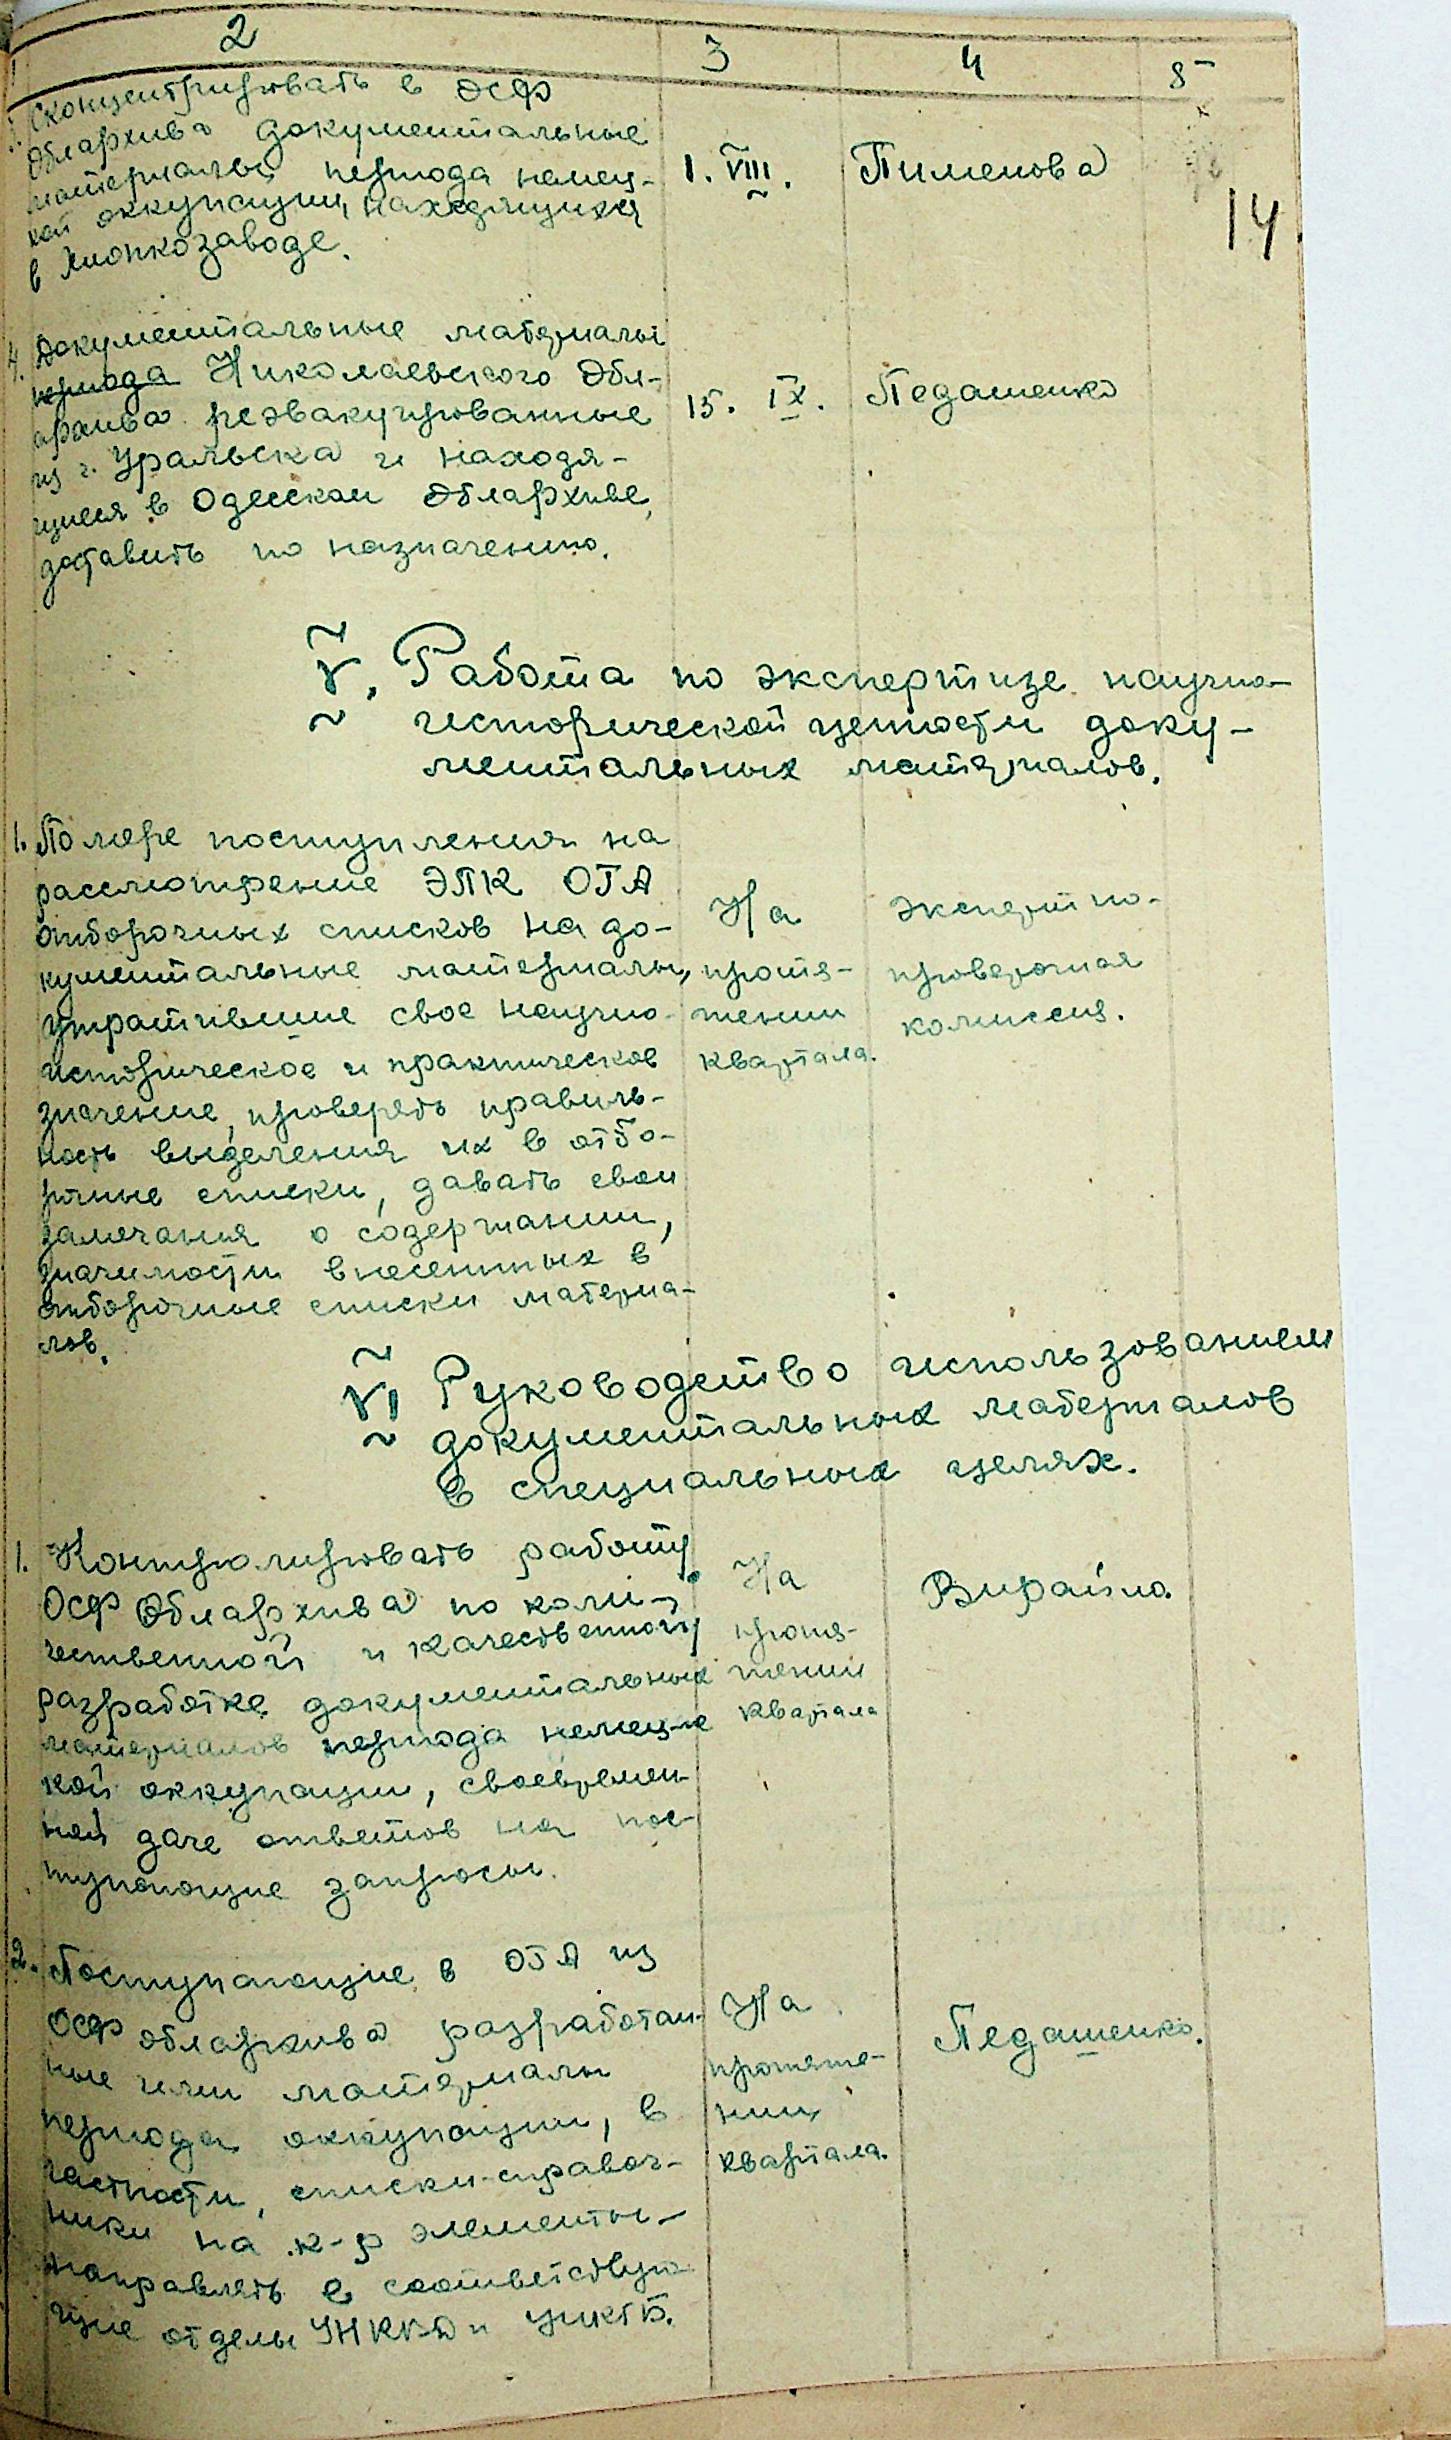 2 3 4 5
Сконцентрировать в ОСФ
Облархива документальные
материалы периода немец-
кой оккупации, находящихся
в Хлопкозаводе.
1. VIII. Пименова
14
4. Документальные материалы
периода Николаевского Обл-
архива реэвакуированные
из г. Уральска и находя-
щиеся в Одесском Облархиве,
доставить по назначению.
15. IX. Педашенко
V. Работа по экспертизе научно-
исторической ценности доку-
ментальных материалов.
1. По мере поступления на
рассмотрение ЭПК ОГА
отборочных списков на до-
кументальные материалы,
утратившие свое научно-
историческое и практическое
значение, проверять правиль-
ность выделения их в отбо-
рочные списки, давать свои
замечания о содержании,
значимости внесенных в
отборочные списки материа-
лов.
На
протя-
жении
квартала.
Экспертно-
проверочная
комиссия.
VI Руководство использованием
документальных материалов
в специальных целях.
1. Контролировать работу
ОСФ Облархива по коли-
чественной и качественной
разработке документальных
материалов периода немец-
кой оккупации, своевремен-
ной даче ответов на пос-
тупающие запросы.
На
протя-
жении
квартала
Вирайло
2. Поступающие в ОГА из
ОСФ облархива разработан-
ные ими материалы
периода оккупации, в
частности, списки-справоч-
ники на к-р элементы-
направлять в соответствую-
щие отделы УНКВД и УНКГБ.
На
протяже-
нии
квартала.
Педашенко.